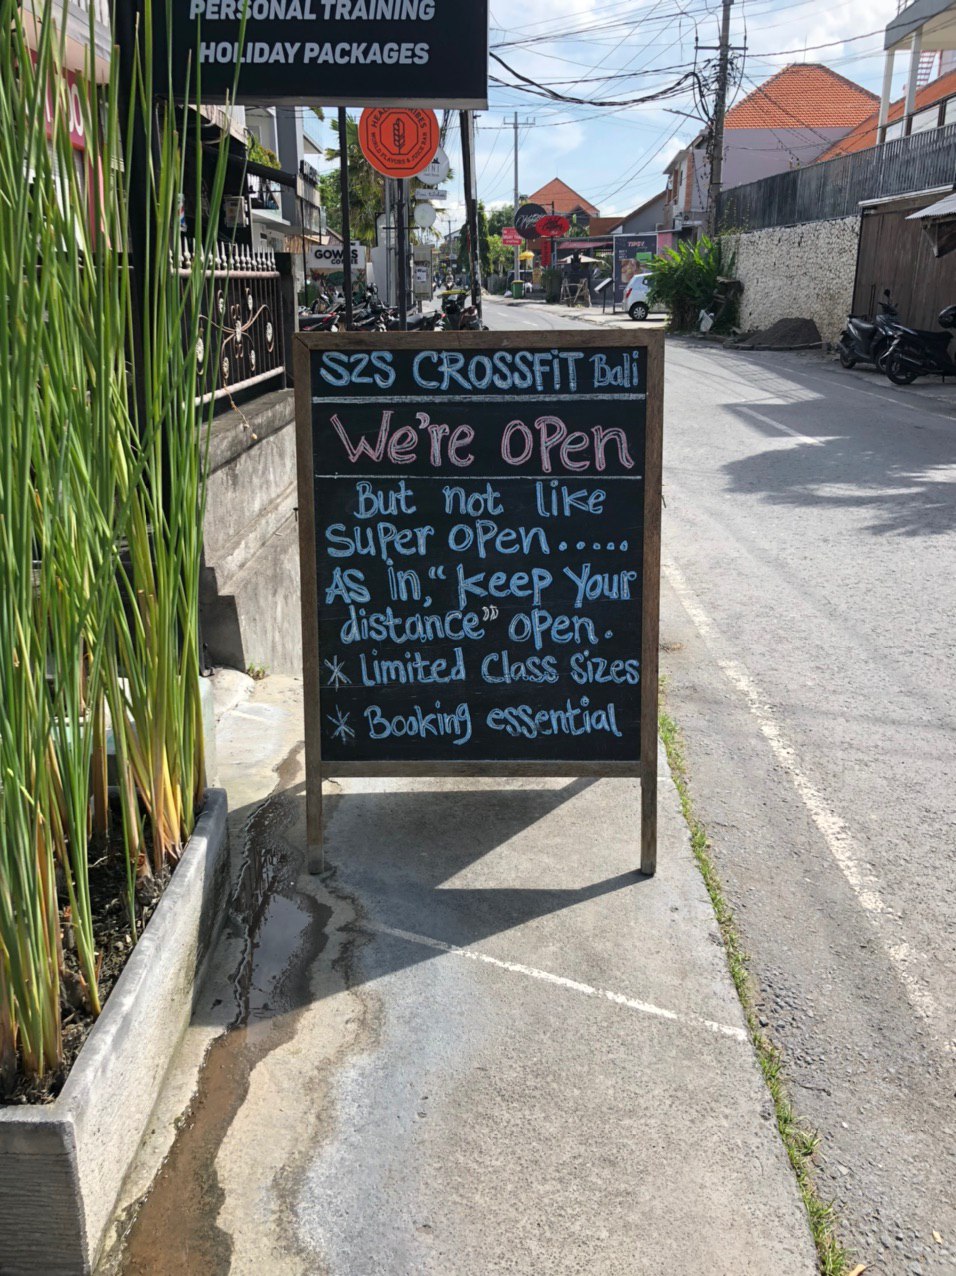 PERSONAL TRAINING
HOLIDAY PACKAGES
WORLD FLAVORS & JUICE BAR
GOWES
TIPSY
S2S CROSSFIT Bali
We're OPen
But not like
super open.....
As in,“ Keep Your
distance” open.
* Limited Class Sizes
* Booking essential